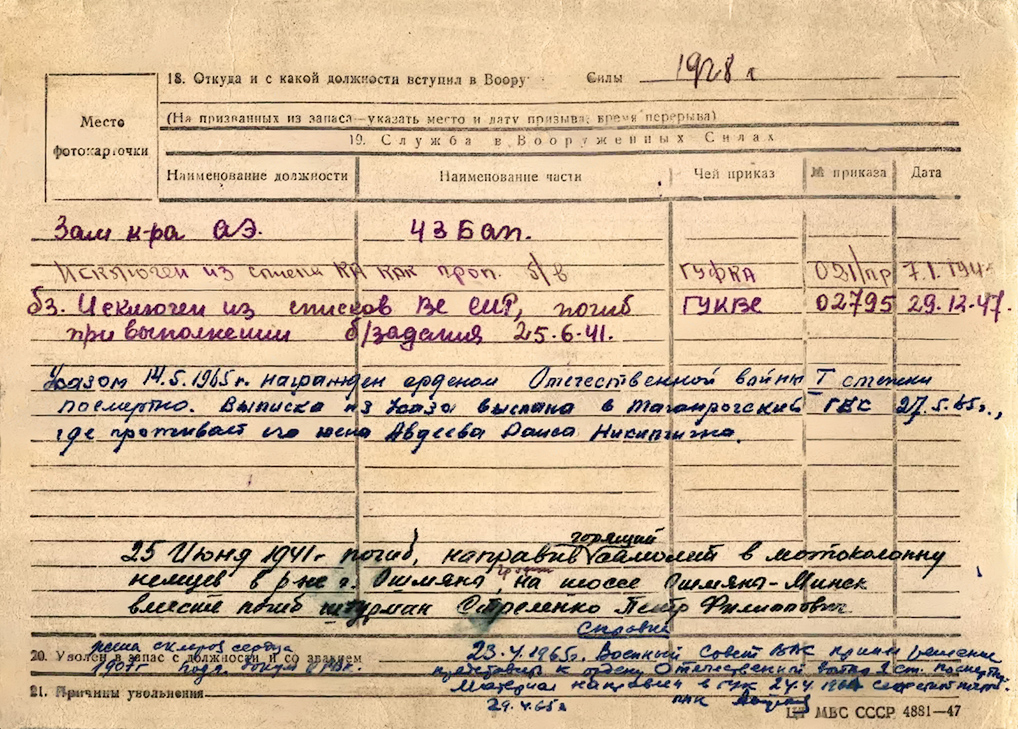 18. Откуда и с какой должности вступил в Воору Силы 1928 г
Место фотокарточки
(На призванных из запаса—указать место и дату призыва, время перерыва)
19. Служба в Вооруженных Силах
Наименование должности Наименование части Чей приказ № приказа Дата
Зам к-ра АЭ. 43 Бап.
Исключен из списка КА как проп. б/в ГУФКА 021/пр 7.1.194
Исключен из списков ВС СССР, погиб ГУКВС 02795 29.12.47.
при выполнении б/задания 25.6.41.
Указом 14.5.1965г. награжден орденом Отечественной войны I степени
посмертно. Выписка из Указа выслана в Таганрогский ГВК 27.5.65г.,
где проживает его жена Авдеева Раиса Никитична.
25 Июня 1941г погиб, направив горящий самолет в мотоколонну
немцев в р-не г. Ошмяна, на шоссе Ошмяна-Минск
вместе погиб штурман Стреленко Петр Филиппович
Справка
20. Уволен в запас с должности и со званием
23.4.1965г. Военный Совет ВВС принял решение
представить к ордену Отечественной войны I ст. посмертно
Материал направлен в ГУК 24.4.
29.4.65г
21. Причины увольнения
МВС СССР 4881—47